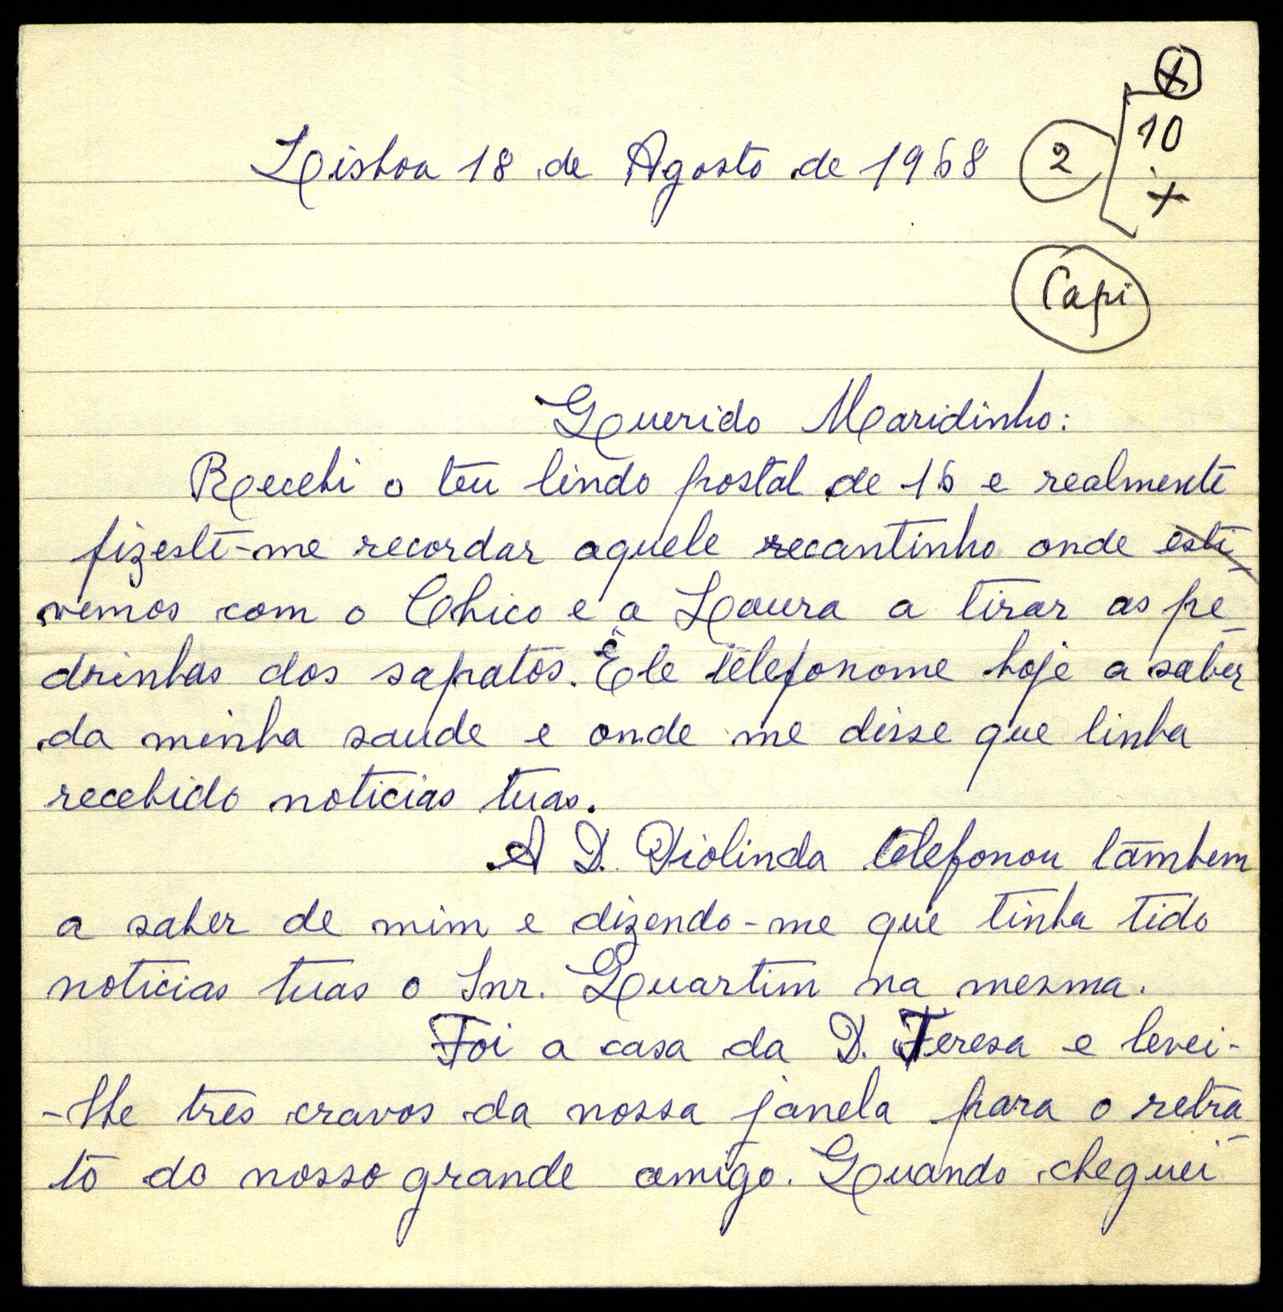 +
10
2
+
Lisboa 18 de Agosto de 1968
Capi
Querido Maridinho:
Recebi o teu lindo postal de 16 e realmente
fizeste-me recordar aquele recantinho onde esti-
vemos com o Chico e a Laura a tirar as pe-
drinhas dos sapatos. Ele telefonome hoje a saber
da minha saude e onde me disse que tinha
recebido noticias tuas.
A D. Violinda telefonou tambem
a saber de mim e dizendo-me que tinha tido
noticias tuas o Snr. Quartim na mesma.
Foi a casa da D. Teresa e levei-
-lhe três cravos da nossa janela para o retra-
to do nosso grande amigo. Quando cheguei